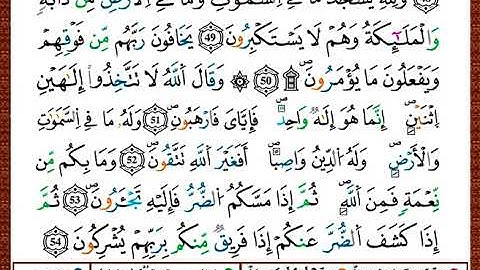 وَلِلَّهِ يَسْجُدُ مَا فِي السَّمٰوٰتِ وَمَا فِي الْاَرْضِ مِنْ دَآبَّةٍ
وَّالْمَلٰٓئِكَةُ وَهُمْ لَا يَسْتَكْبِرُوْنَ ﴿49﴾ يَخَافُوْنَ رَبَّهُمْ مِّنْ فَوْقِهِمْ
وَيَفْعَلُوْنَ مَا يُؤْمَرُوْنَ ﴿50﴾ ۞ وَقَالَ اللّٰهُ لَا تَتَّخِذُوْٓا اِلٰهَيْنِ
اثْنَيْنِ ۚ اِنَّمَا هُوَ اِلٰهٌ وَّاحِدٌ ۚ فَاِيَّايَ فَارْهَبُوْنِ ﴿51﴾ وَلَهٗ مَا فِي السَّمٰوٰتِ
وَالْاَرْضِ وَلَهُ الدِّيْنُ وَاصِبًا ؕ اَفَغَيْرَ اللّٰهِ تَتَّقُوْنَ ﴿52﴾ وَمَا بِكُمْ مِّنْ
نِّعْمَةٍ فَمِنَ اللّٰهِ ثُمَّ اِذَا مَسَّكُمُ الضُّرُّ فَاِلَيْهِ تَجْـَٔرُوْنَ ﴿53﴾ ثُمَّ
اِذَا كَشَفَ الضُّرَّ عَنْكُمْ اِذَا فَرِيْقٌ مِّنْكُمْ بِرَبِّهِمْ يُشْرِكُوْنَ ﴿54﴾